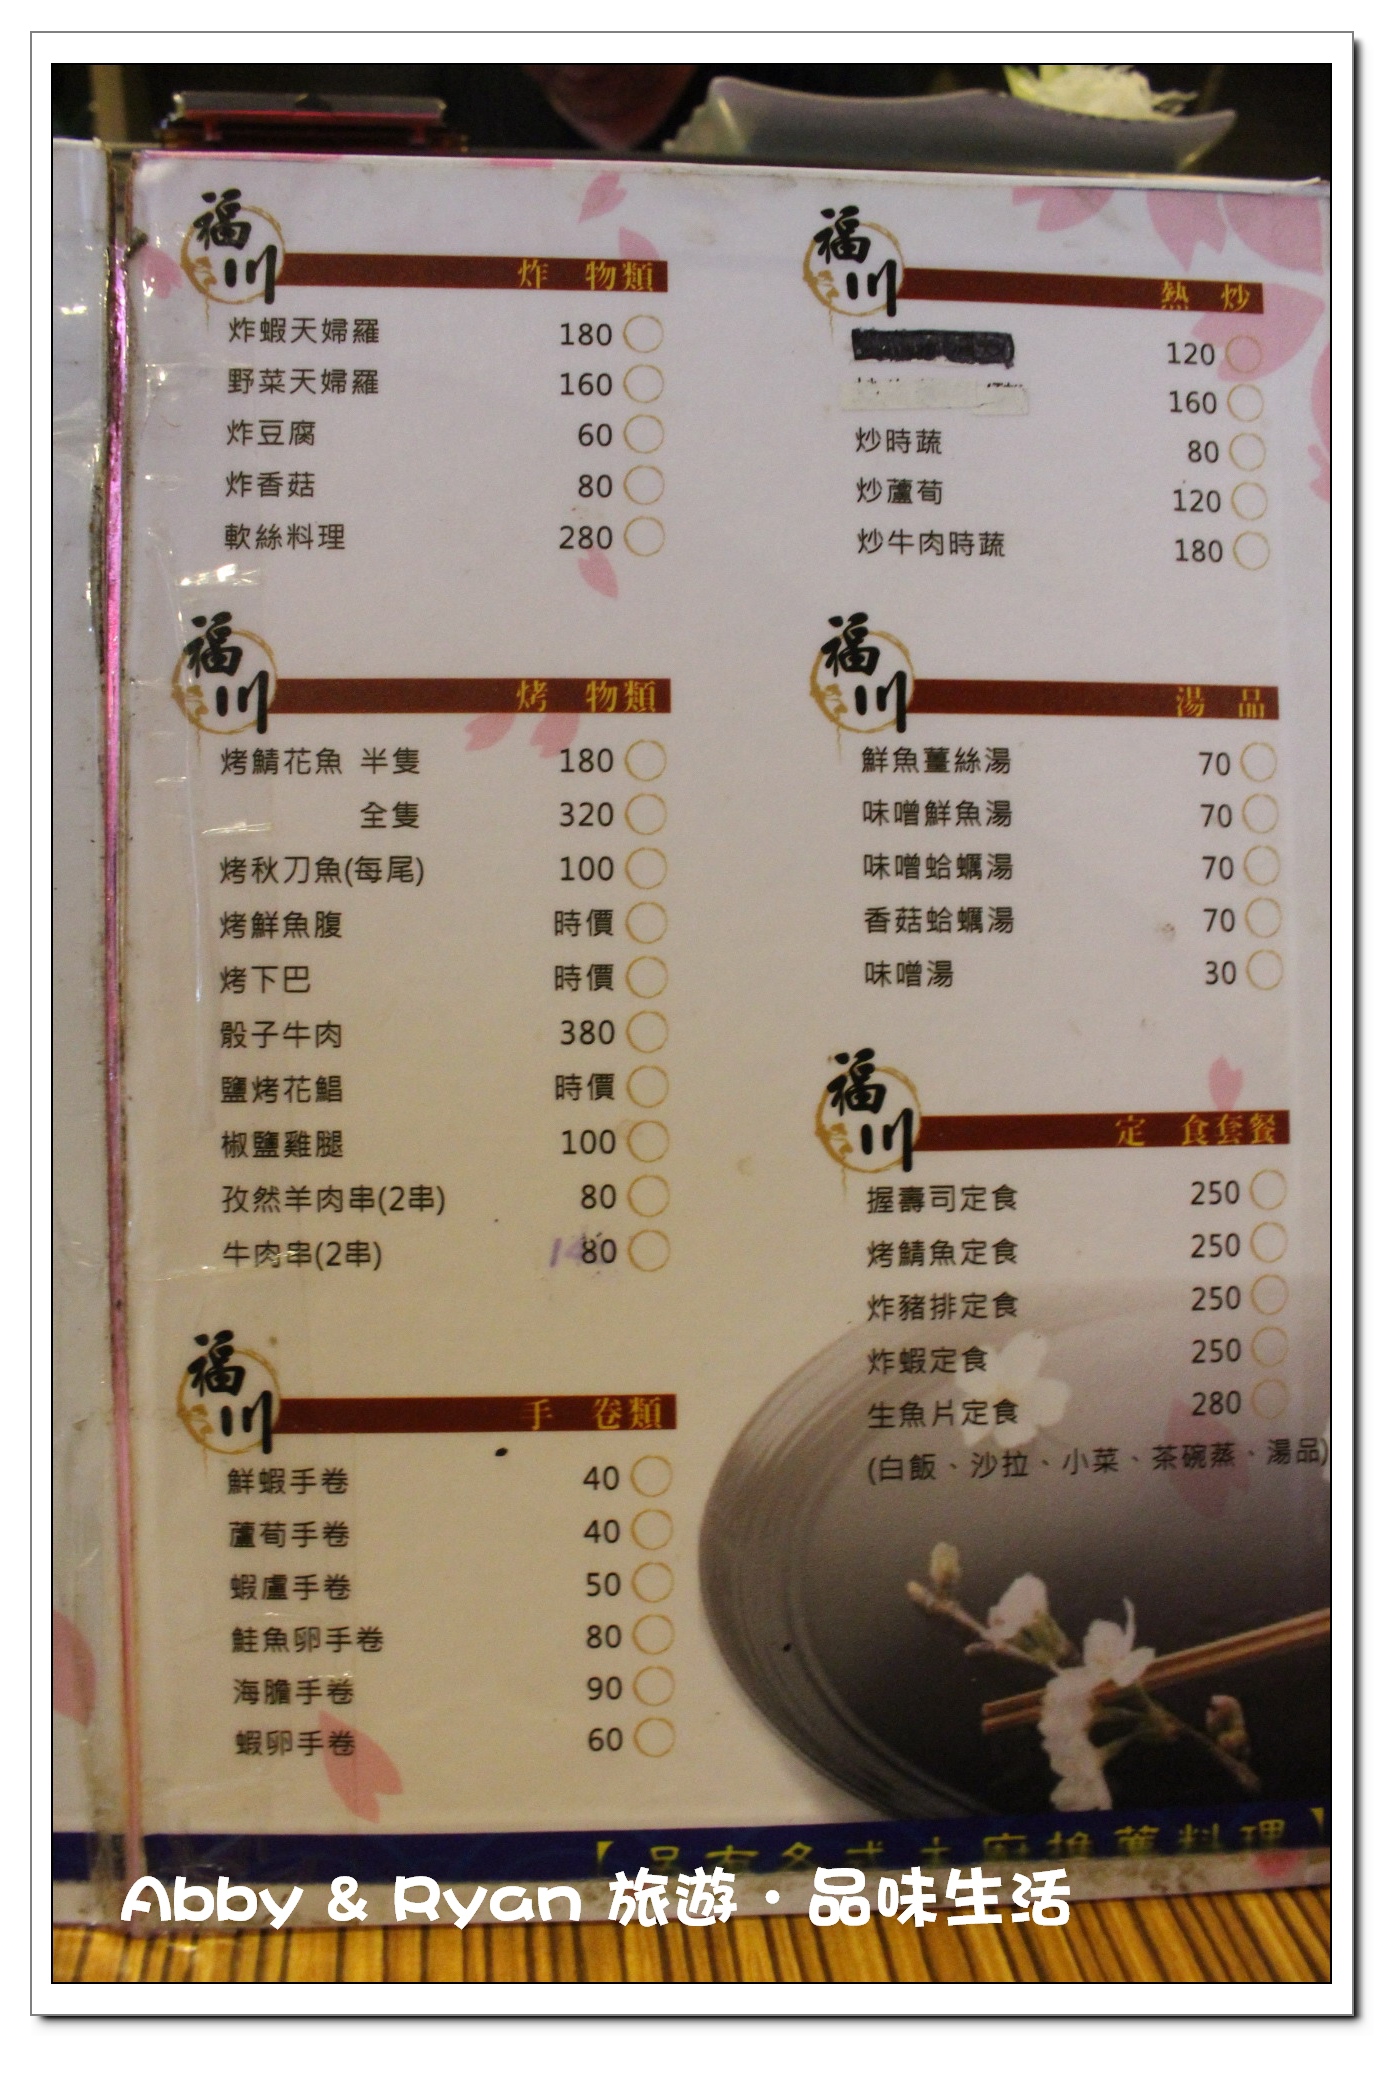 福川
炸 物類
炸蝦天婦羅 180
野菜天婦羅 160
炸豆腐 60
炸香菇 80
軟絲料理 280
福川
烤 物類
烤鯖花魚 半隻 180
全隻 320
烤秋刀魚(每尾) 100
烤鮮魚腹 時價
烤下巴 時價
骰子牛肉 380
鹽烤花鯧 時價
椒鹽雞腿 100
孜然羊肉串(2串) 80
牛肉串(2串) 80
福川
手 卷類
鮮蝦手卷 40
蘆荀手卷 40
蝦盧手卷 50
鮭魚卵手卷 80
海膽手卷 90
蝦卵手卷 60
福川
熱 炒
120
160
炒時蔬 80
炒蘆荀 120
炒牛肉時蔬 180
福川
湯 品
鮮魚薑絲湯 70
味噌鮮魚湯 70
味噌蛤蠣湯 70
香菇蛤蠣湯 70
味噌湯 30
福川
定 食套餐
握壽司定食 250
烤鯖魚定食 250
炸豬排定食 250
炸蝦定食 250
生魚片定食 280
(白飯、沙拉、小菜、茶碗蒸、湯品)
【另有各式主廚推薦料理】
Abby & Ryan 旅遊·品味生活